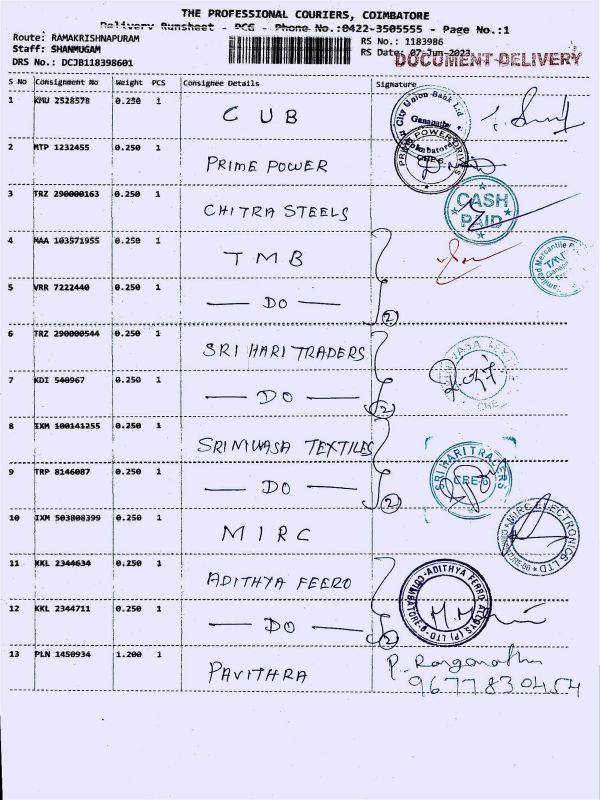 THE PROFESSIONAL COURIERS, COIMBATORE
Delivery Runsheet - PCG - Phone No.:0422-3505555 - Page No.:1
Route: RAMAKRISHNAPURAM RS No.: 1183986
Staff: SHANMUGAM RS Date: 07-Jun-2023
DOCUMENT DELIVERY
DRS No.: DCJB118398601
S No Consignment No Weight PCS Consignee Details Signature
1 KMU 2528578 0.250 1 CUB
City Union Bank Ltd. Ganapathy Coimbatore
2 MTP 1232455 0.250 1 PRIME POWER
PRIME POWER DRIVES CBE-6
3 TRZ 290000163 0.250 1 CHITRA STEELS
CASH PAID
4 MAA 103571955 0.250 1 TMB
Tamilnad Mercantile TMB
5 VRR 7222440 0.250 1 — DO — 2
6 TRZ 290000544 0.250 1 SRI HARI TRADERS
7 KDI 540967 0.250 1 — DO — 2
CBE
8 IXM 100141255 0.250 1 SRINIVASA TEXTILES
9 TRP 8146087 0.250 1 — DO — 2
SRI HARI TRADERS CBE-6
10 IXM 503808399 0.250 1 MIRC
MIRC ELECTRONICS LTD
11 KKL 2344634 0.250 1 ADITHYA FEERO
ADITHYA FERRO ALLOYS (P) LTD COIMBATORE-6
12 KKL 2344711 0.250 1 — DO — 2
13 PLN 1450934 1.200 1 PAVITHRA
P. Ranganathan
9677830454